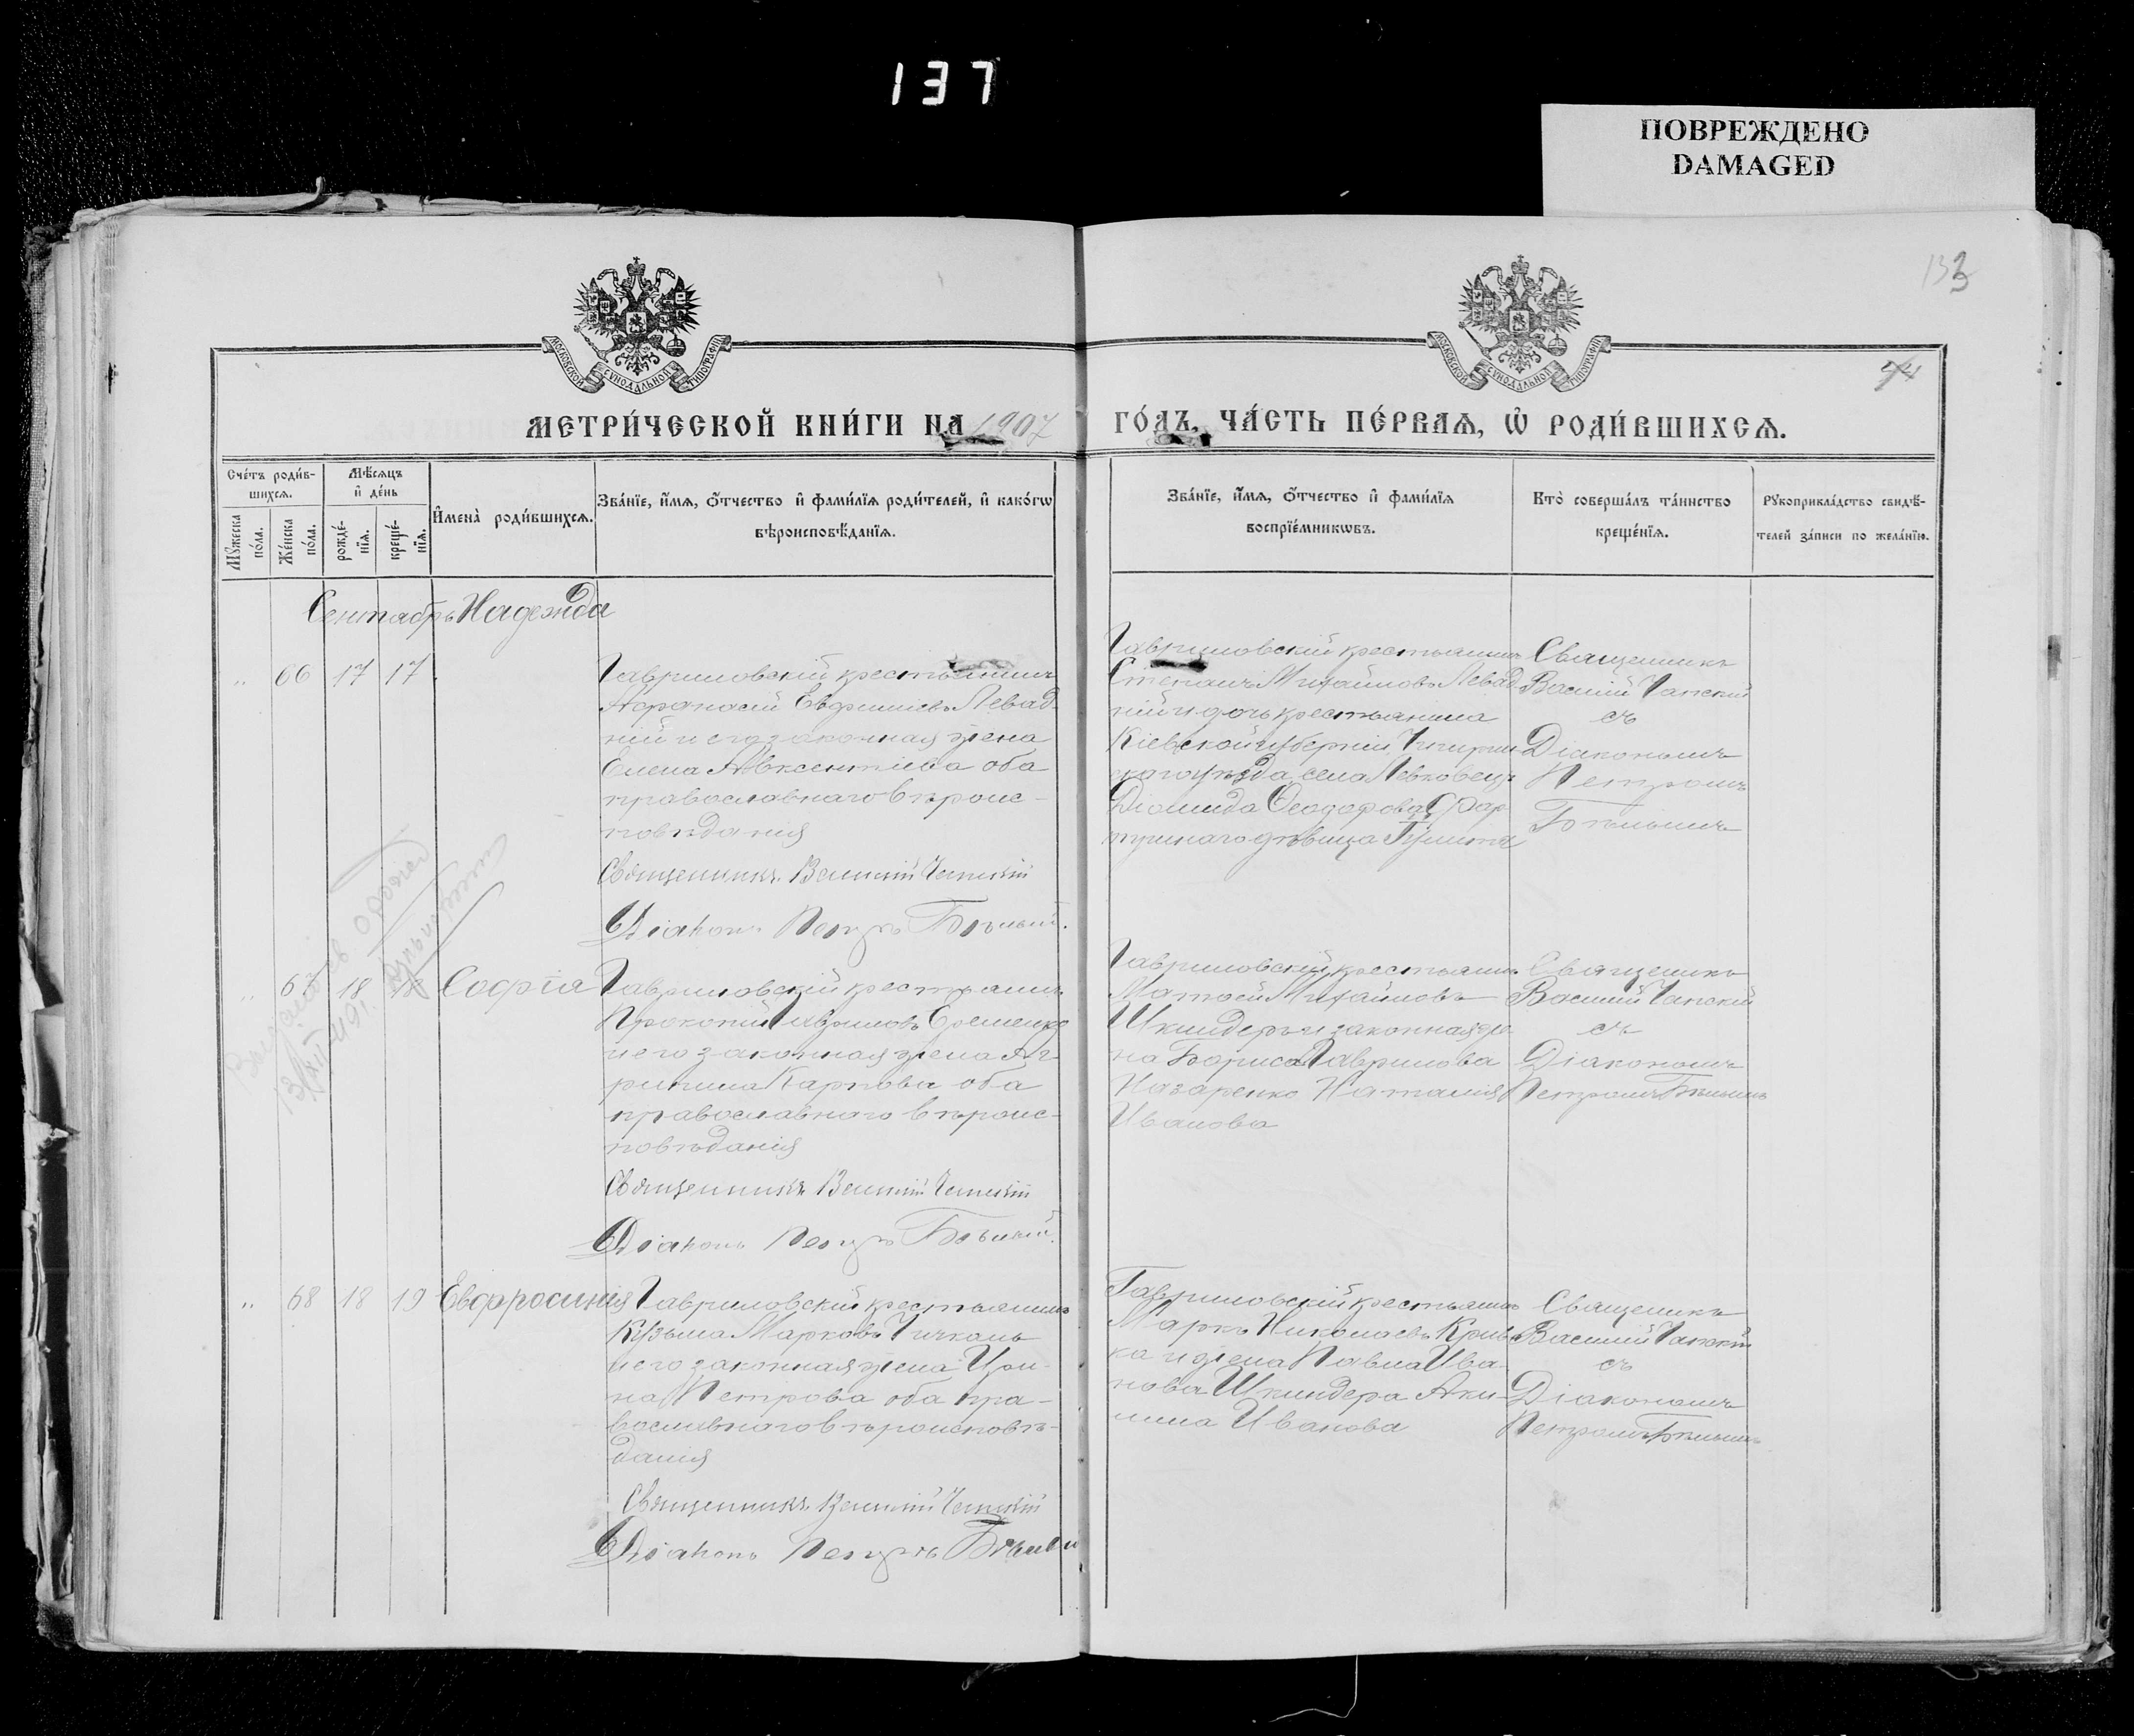 137
ПОВРЕЖДЕНО
DAMAGED
133
74
МОСКОВСКОЙ СѴНОДАЛЬНОЙ ТИПОГРАФІИ
МОСКОВСКОЙ СѴНОДАЛЬНОЙ ТИПОГРАФІИ
МЕТРИ́ЧЕСКОЙ КНИ́ГИ НА 1907
ГО́ДЪ, ЧА́СТЬ ПЕ́РВАѦ, Ѡ҆ РОДИ́ВШИХСѦ.
Сче́тъ роди́в-
шихсѧ.
Мꙋ́жеска
по́ла.
Же́нска
по́ла.
Мѣ́сѧцъ
и҆ де́нь
рожде́-
нїѧ.
креще́-
нїѧ.
И҆мена̀ роди́вшихсѧ.
Зва́нїе, и҆́мѧ, ѻ҆́тчество и҆ фами́лїѧ роди́телей, и҆ како́гѡ
вѣроисповѣ́данїѧ.
Зва́нїе, и҆́мѧ, ѻ҆́тчество и҆ фами́лїѧ
воспрїе́мникѡвъ.
Кто̀ соверша́лъ та́инство
креще́нїѧ.
Рꙋкоприкла́дство свидѣ́-
телей за́писи по жела́нїю.
Сентябрь Надежда
" 66 17 17
Гавриловскій крестьянинъ
Афанасій Евфимовъ Левад
ній и его законная жена
Елена Авксентіева оба
православнаго вѣроис-
повѣданія
Священникъ Василій Чапскій
Діаконъ Петръ Бѣлый.
Гавриловскій крестьянинъ
Стефанъ Михайловъ Левад
ній и дочь крестьянина
Кіевской губерніи Чигирин
скаго уѣзда села
Діомида Ѳеодорова
дѣвица
Священникъ
Василій Чапскій
съ
Діакономъ
Петромъ
Бѣлымъ
" 67 18 18 Софія
Гавриловскій крестьянинъ
Прокопій Гавриловъ Еременко
и его законная жена Аг-
рипина Карпова оба
православнаго вѣроис-
повѣданія
Священникъ Василій Чапскій
Діаконъ Петръ Бѣлый.
Гавриловскій крестьянинъ
Матѳей Михайловъ
Шкиндеръ и законная же
на Бориса Гаврилова
Назаренко Наталія
Иванова
Священникъ
Василій Чапскій
съ
Діакономъ
Петромъ Бѣлымъ
" 68 18 19 Евфросинія
Гавриловскій крестьянинъ
Кузьма Марковъ
и его законная жена Ири-
на Петрова оба пра-
вославнаго вѣроисповѣ-
данія
Священникъ Василій Чапскій
Діаконъ Петръ Бѣлый
Гавриловскій крестьянинъ
Маркъ Николаевъ
и жена Павла Ива
нова Шкиндера Аки-
лина Иванова
Священникъ
Василій Чапскій
съ
Діакономъ
Петромъ Бѣлымъ